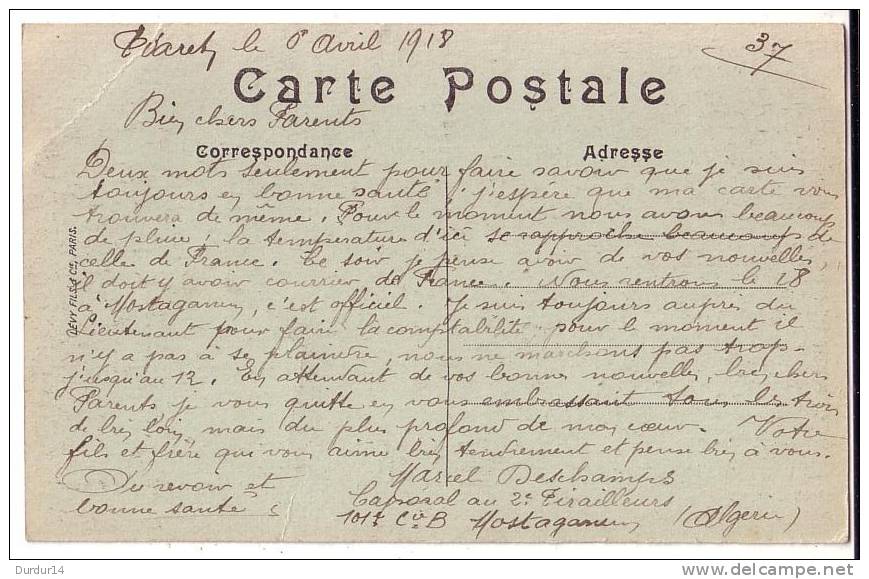 Tiaret le 6 Avril 1918
37
Carte Postale
Bien chers Parents
Correspondance
Adresse
Deux mots seulement pour faire savoir que je suis
toujours en bonne santé j'espère que ma carte vous
trouvera de même. Pour le moment nous avons beaucoup
de pluie; la température d'ici se rapproche beaucoup de
celle de France. Ce soir je pense avoir de vos nouvelles,
il doit y avoir courrier de France. Nous rentrons le 18
à Mostaganem, c'est officiel. Je suis toujours auprès du
Lieutenant pour faire la comptabilité pour le moment il
n'y a pas à se plaindre, nous ne marchons pas trop
jusqu'au 12. En attendant de vos bonnes nouvelles, bien chers
Parents je vous quitte en vous embrassant tous les trois
de bien loin mais du plus profond de mon cœur. Votre
fils et frère qui vous aime bien tendrement et pense bien à vous.
Marcel Deschamps
Au revoir et
Caporal au 2e Tirailleurs
bonne santé
101e Cie B Mostaganem (Algérie)
LEVY FILS & Cie, PARIS.
Durdur14
delcampe.net